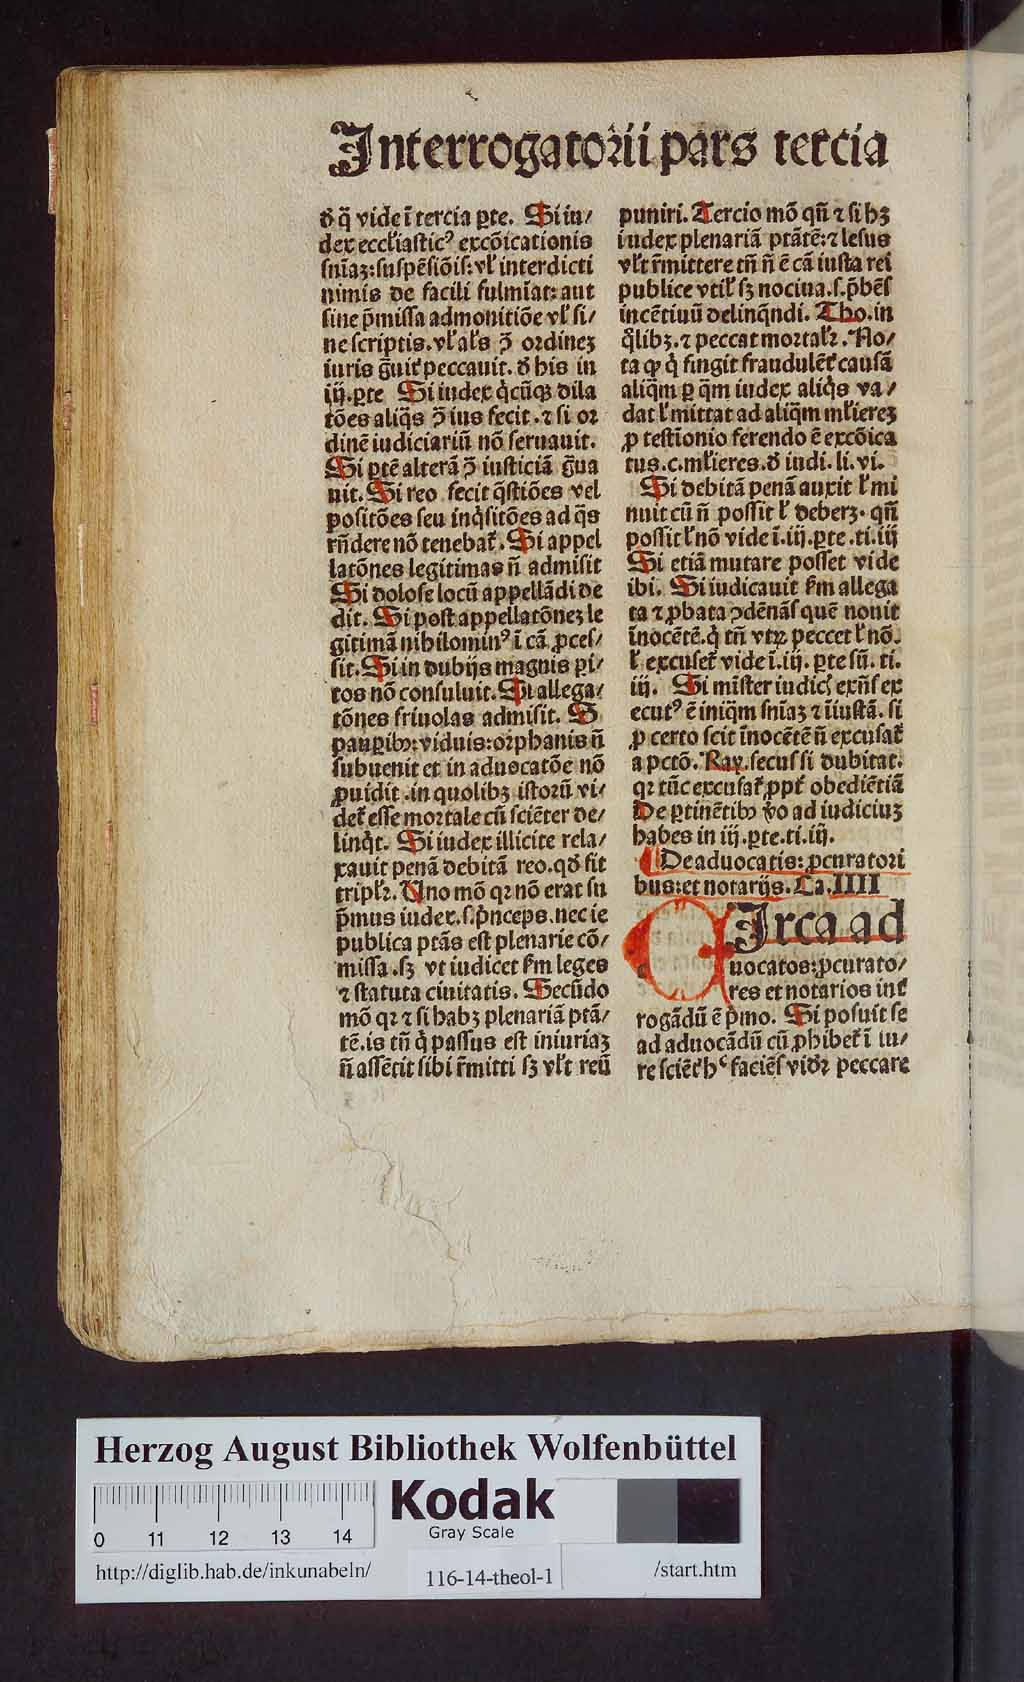 Interrogatorii pars tercia
đ q̃ vide ī tercia ꝑte. Si iu/
dex eccl'iastic⁹ excōicationis
snīaꝫ:suspēsiōis:vl' interdicti
nimis de facili fulmīat: aut
sine p̄missa admonitiōe vl' si/
ne scriptis. vl' al's ꝯ̄ ordineꝫ
iuris g̃uit᷑ peccauit. đ his in
iij. ꝑte Si iudex q̇cūqꝫ dila
tōes aliq̇s ꝯ̄ ius fecit. ⁊ si or
dinē iudiciariū nō seruauit.
Si ꝑtē alterā ꝯ̄ iusticiā g̃ua
uit. Si reo fecit q̄stiōes vel
positōes seu inq̇sitōes ad q̃s
rñdere nō tenebat᷑. Si appel
latōnes legitimas ñ admisit
Si dolose locū appellādi de
dit. Si post appellatōneꝫ le
gitimā nihilomin⁹ ī cā ꝓces/
sit. Si in dubijs magnis ꝑi/
tos nō consuluit. Si allega/
tōnes friuolas admisit. S
pauꝑibꝰ: viduis: orphanis ñ
subuenit et in aduocatōe nō
ꝓuidit .in quolibꝫ istorū vi/
det᷑ esse mortale cū sciēter de/
linq̇t. Si iudex illicite rela/
xauit penā debitā reo. qđ fit
tripl'r. Uno mō qꝛ nō erat su
p̄mus iudex .s. ṗnceps. nec ie
publica ptās est plenarie cō/
missa .sꝫ vt iudicet km̄ leges
⁊ statuta ciuitatis. Secūdo
mō qꝛ ⁊ si habꝫ plenariā ptā/
tē. is tñ q̇ passus est iniuriaꝫ
ñ assētit sibi r̄mitti sꝫ vl't reū
puniri. Tercio mō qñ ⁊ si hꝫ
iudex plenariā ptātē: ⁊ lesus
vl't r̄mittere tñ ñ ē cā iusta rei
publice vtil' sꝫ nociua .s. p̄bēs
incētiuū delinq̄ndi. Tho. in
q̇libꝫ. ⁊ peccat mortal'r. No/
ta ꝙ q̇ fingit fraudulēt᷑ causā
aliq̄m ꝑ q̄m iudex aliq̇s va/
dat l' mittat ad aliq̄m ml'iereꝫ
ꝓ testīonio ferendo ē excōica
tus .c. ml'ieres. đ iudi. li. vi.
Si debitā penā auxit l' mi
nuit cū ñ possit l' deberꝫ. qñ
possit l' nō vide ī. iij. ꝑte. ti. iij
Si etiā mutare posset vide
ibi. Si iudicauit km̄ allega
ta ⁊ ꝓbata ꝯdēnās quē nouit
īnocētē. q̇ tñ vtꝝ peccet l' nō.
l' excuset᷑ vide ī. iij. ꝑte sū. ti.
iij. Si mīster iudicꝭ exñs ex
ecut⁹ ē iniq̄m snīaꝫ ⁊ īiustā. si
ꝓ certo scit īnocētē ñ excusat᷑
a pctō. Ray. secus si dubitat.
qꝛ tūc excusat᷑ ꝓpt᷑ obediētiā
De ꝑtinētibꝰ v̊o ad iudiciuꝫ
habes in iij. ꝑte. ti. iij.
¶ De aduocatis: ꝓcuratori
bus: et notarijs. Ca. IIII
CIrca ad
uocatos: ꝓcurato/
res et notarios int᷑
rogādū ē ṗmo. Si posuit se
ad aduocādū cū ꝓhibet᷑ ī iu/
re sciēt᷑ hᶜ faciēs vidꝛ peccare
Herzog August Bibliothek Wolfenbüttel
0 11 12 13 14
Kodak
Gray Scale
http://diglib.hab.de/inkunabeln/
116-14-theol-1
/start.htm